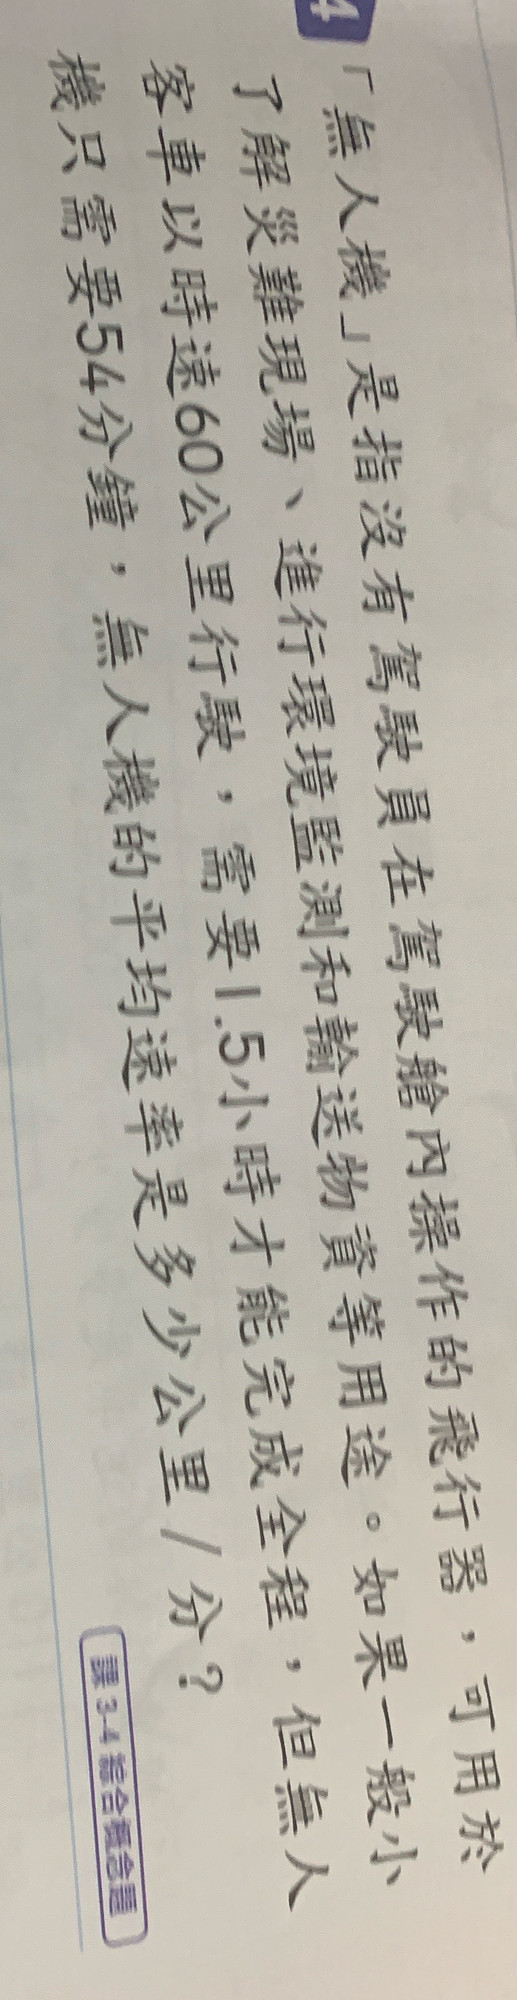 4
「無人機」是指沒有駕駛員在駕駛艙內操作的飛行器，可用於
了解災難現場、進行環境監測和輸送物資等用途。如果一般小
客車以時速60公里行駛，需要1.5小時才能完成全程，但無人
機只需要54分鐘，無人機的平均速率是多少公里/分？
課3-4 綜合概念題